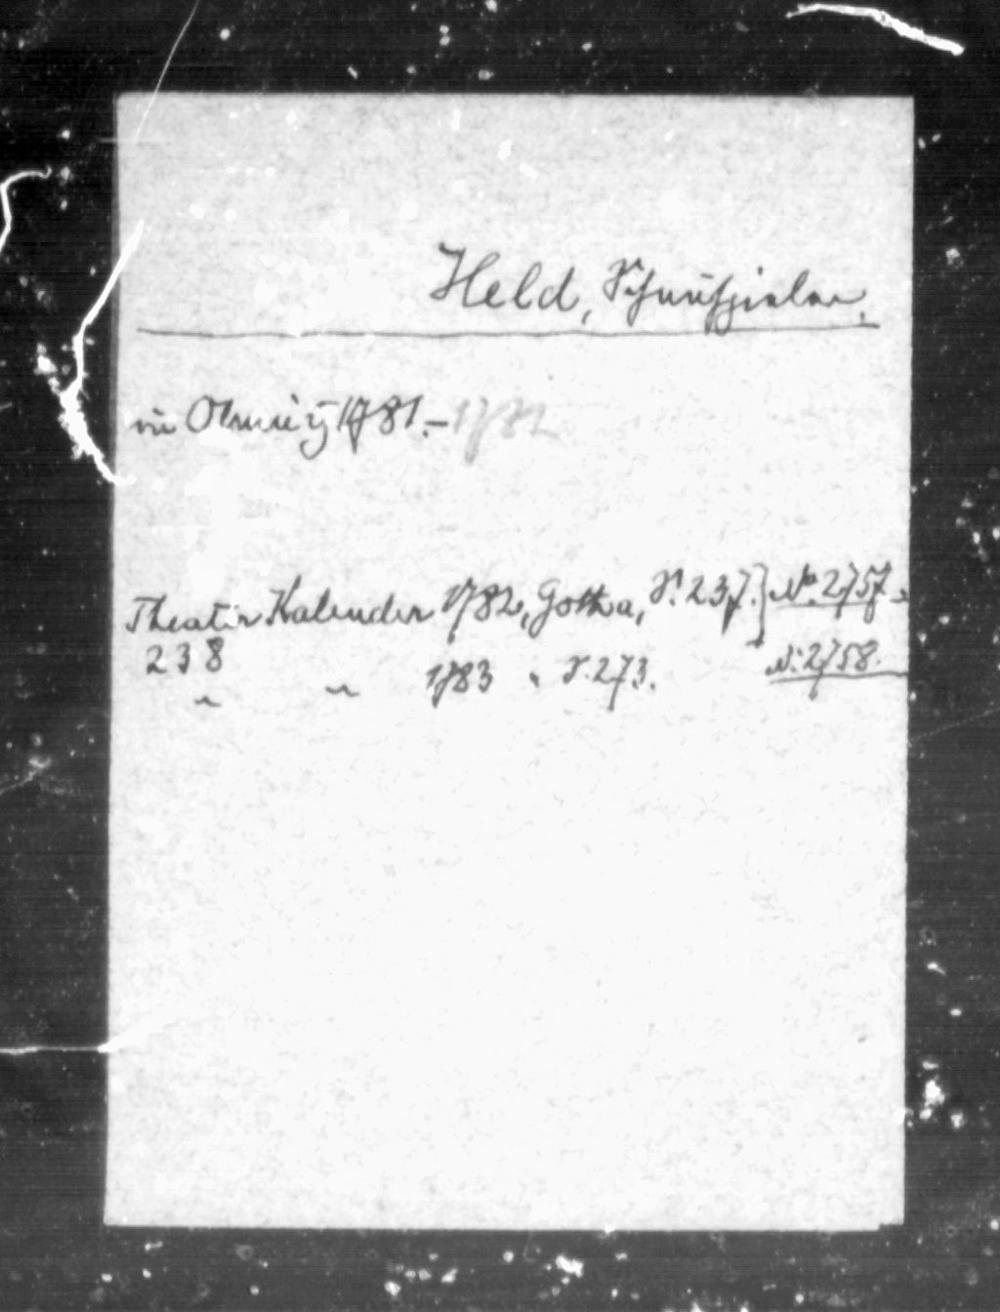 Held, Schauspieler.
in Olmütz 1781.–1782
Theater Kalender 1782, Gotha, S. 237.] No. 2757.
238
" " 1783 " S. 273. N: 2758.